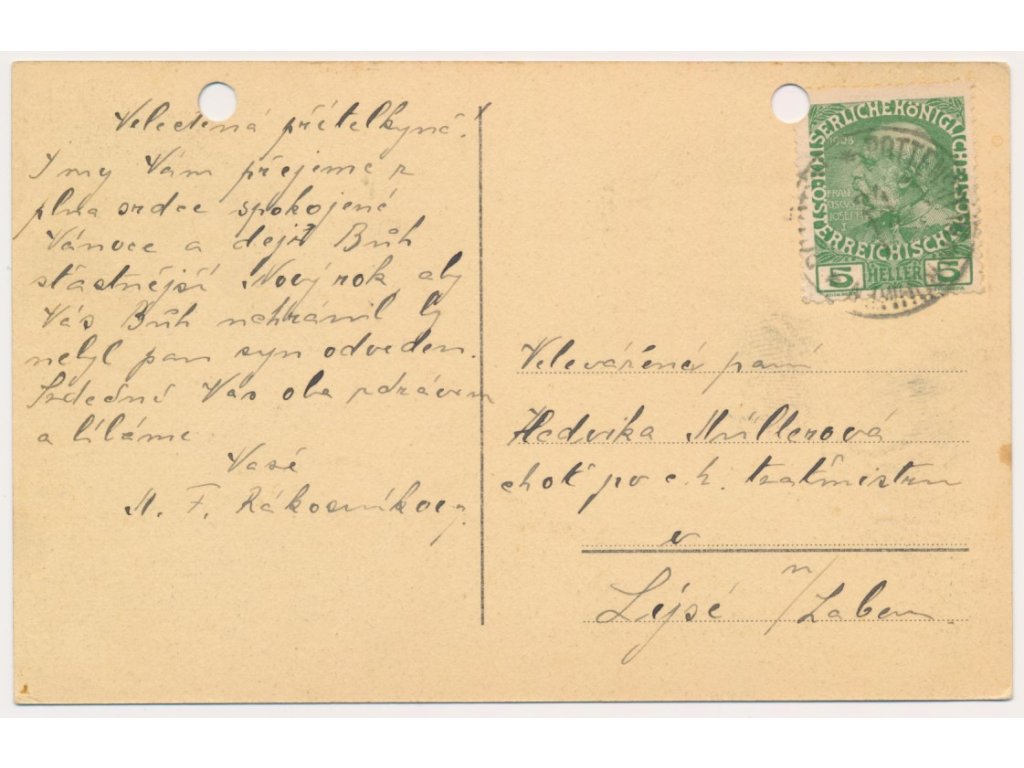 Velectěná přítelkyně!
I my Vám přejeme z
plna srdce spokojené
Vánoce a dejž Bůh
šťastnější Nový rok, aby
Vás Bůh nehránil by
nebyl pan syn odveden.
Srdečně Vás oba zdravíme
a líbáme
Vaše
M. F. Rákosníkovi
KAISERLICHE KÖNIGLICHE ÖSTERREICHISCHE POST
1908
FRAN
CISCVS
JOSEPH I
5 HELLER 5
POTTEN
Velevážená paní
Hedvika Müllerová
choť po c. k. tratmistru
v
Lysé n/Labem